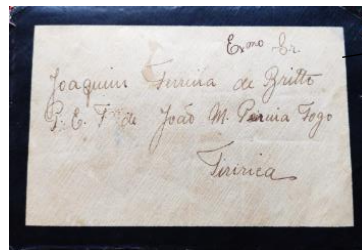 Exmo Sr
Joaquim Ferreira de Britto
P. E. F. de João M. Pereira Fogo
Tiririca